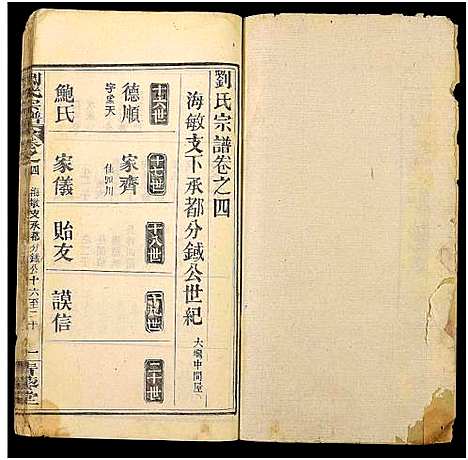 劉氏宗譜卷之四
海敏支下承都分鉞公世紀
大塆中間屋
十六世
十七世
十八世
十九世
二十世
德順
字至天
家齊
住四川
鮑氏
家儀
貽友
謨信
劉氏宗譜
卷之四
海敏支承都分鉞公十六至二十
一